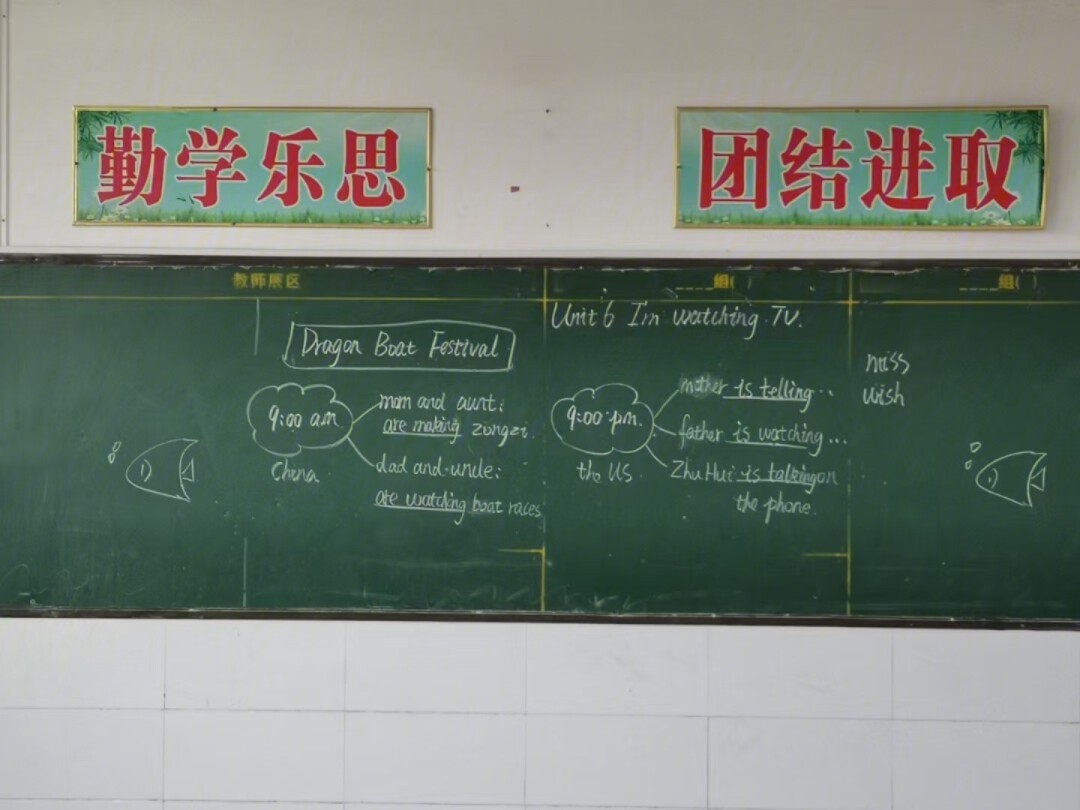 勤学乐思
团结进取
教师展区
组( )
组( )
Unit 6 I'm watching TV.
Dragon Boat Festival
9:00 a.m.
China
mom and aunt:
are making zongzi.
dad and uncle:
are watching boat races
9:00 p.m.
the US
mother is telling...
father is watching...
Zhu Hui is talking on
the phone.
miss
wish